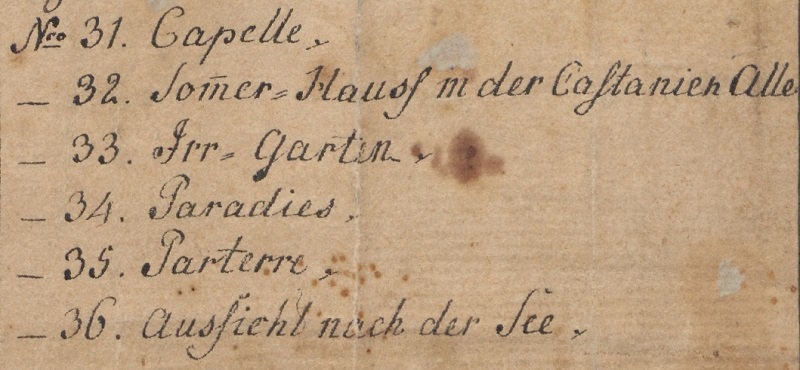 Nro 31. Capelle,
— 32. Som̄er=Hausſ in der Caſtanien Alle
— 33. Irr=Garten,
— 34. Paradies,
— 35. Parterre,
— 36. Ausſicht nach der See,